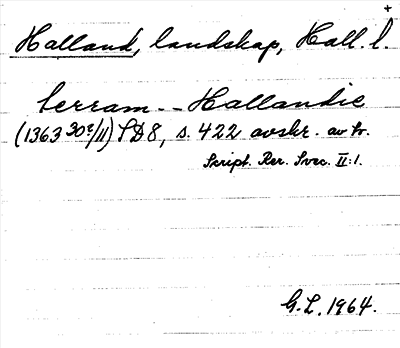 +
Halland, landskap, Hall. l.
terram -- Hallandie
(1363 30?/11) SD 8, s. 422 avskr. av tr.
Skript. Rer. Svec. II:1.
G.L. 1964.